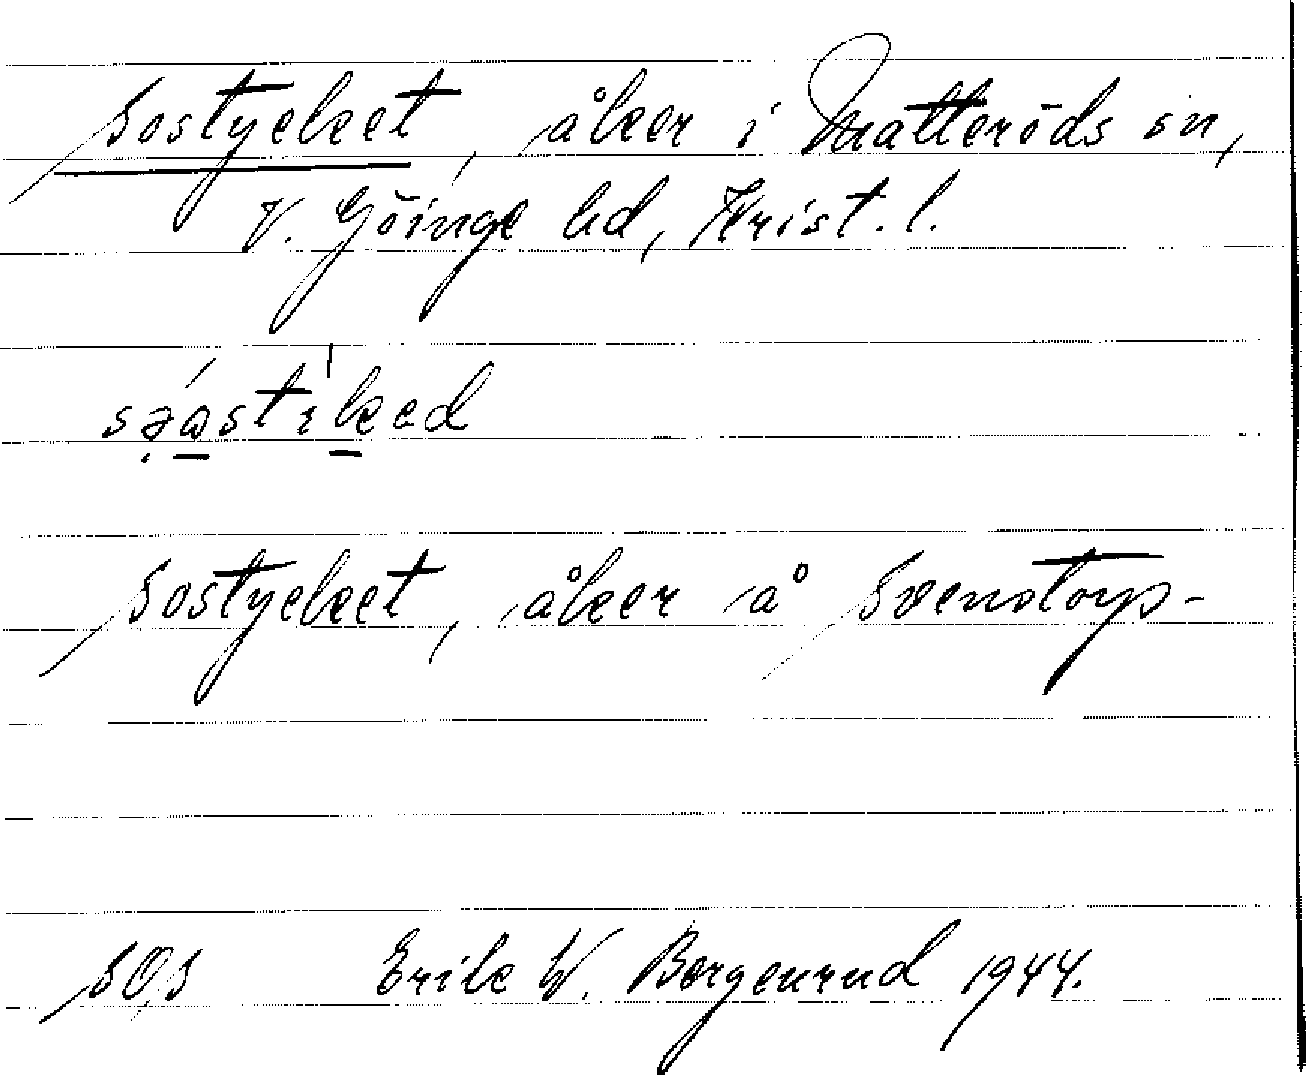 Sostycket, åker i Matteröds sn,
V. Göinge hd, Krist. l.
Sostycket, åker å Svenstorp-
Erik W. Bergenrud 1944.